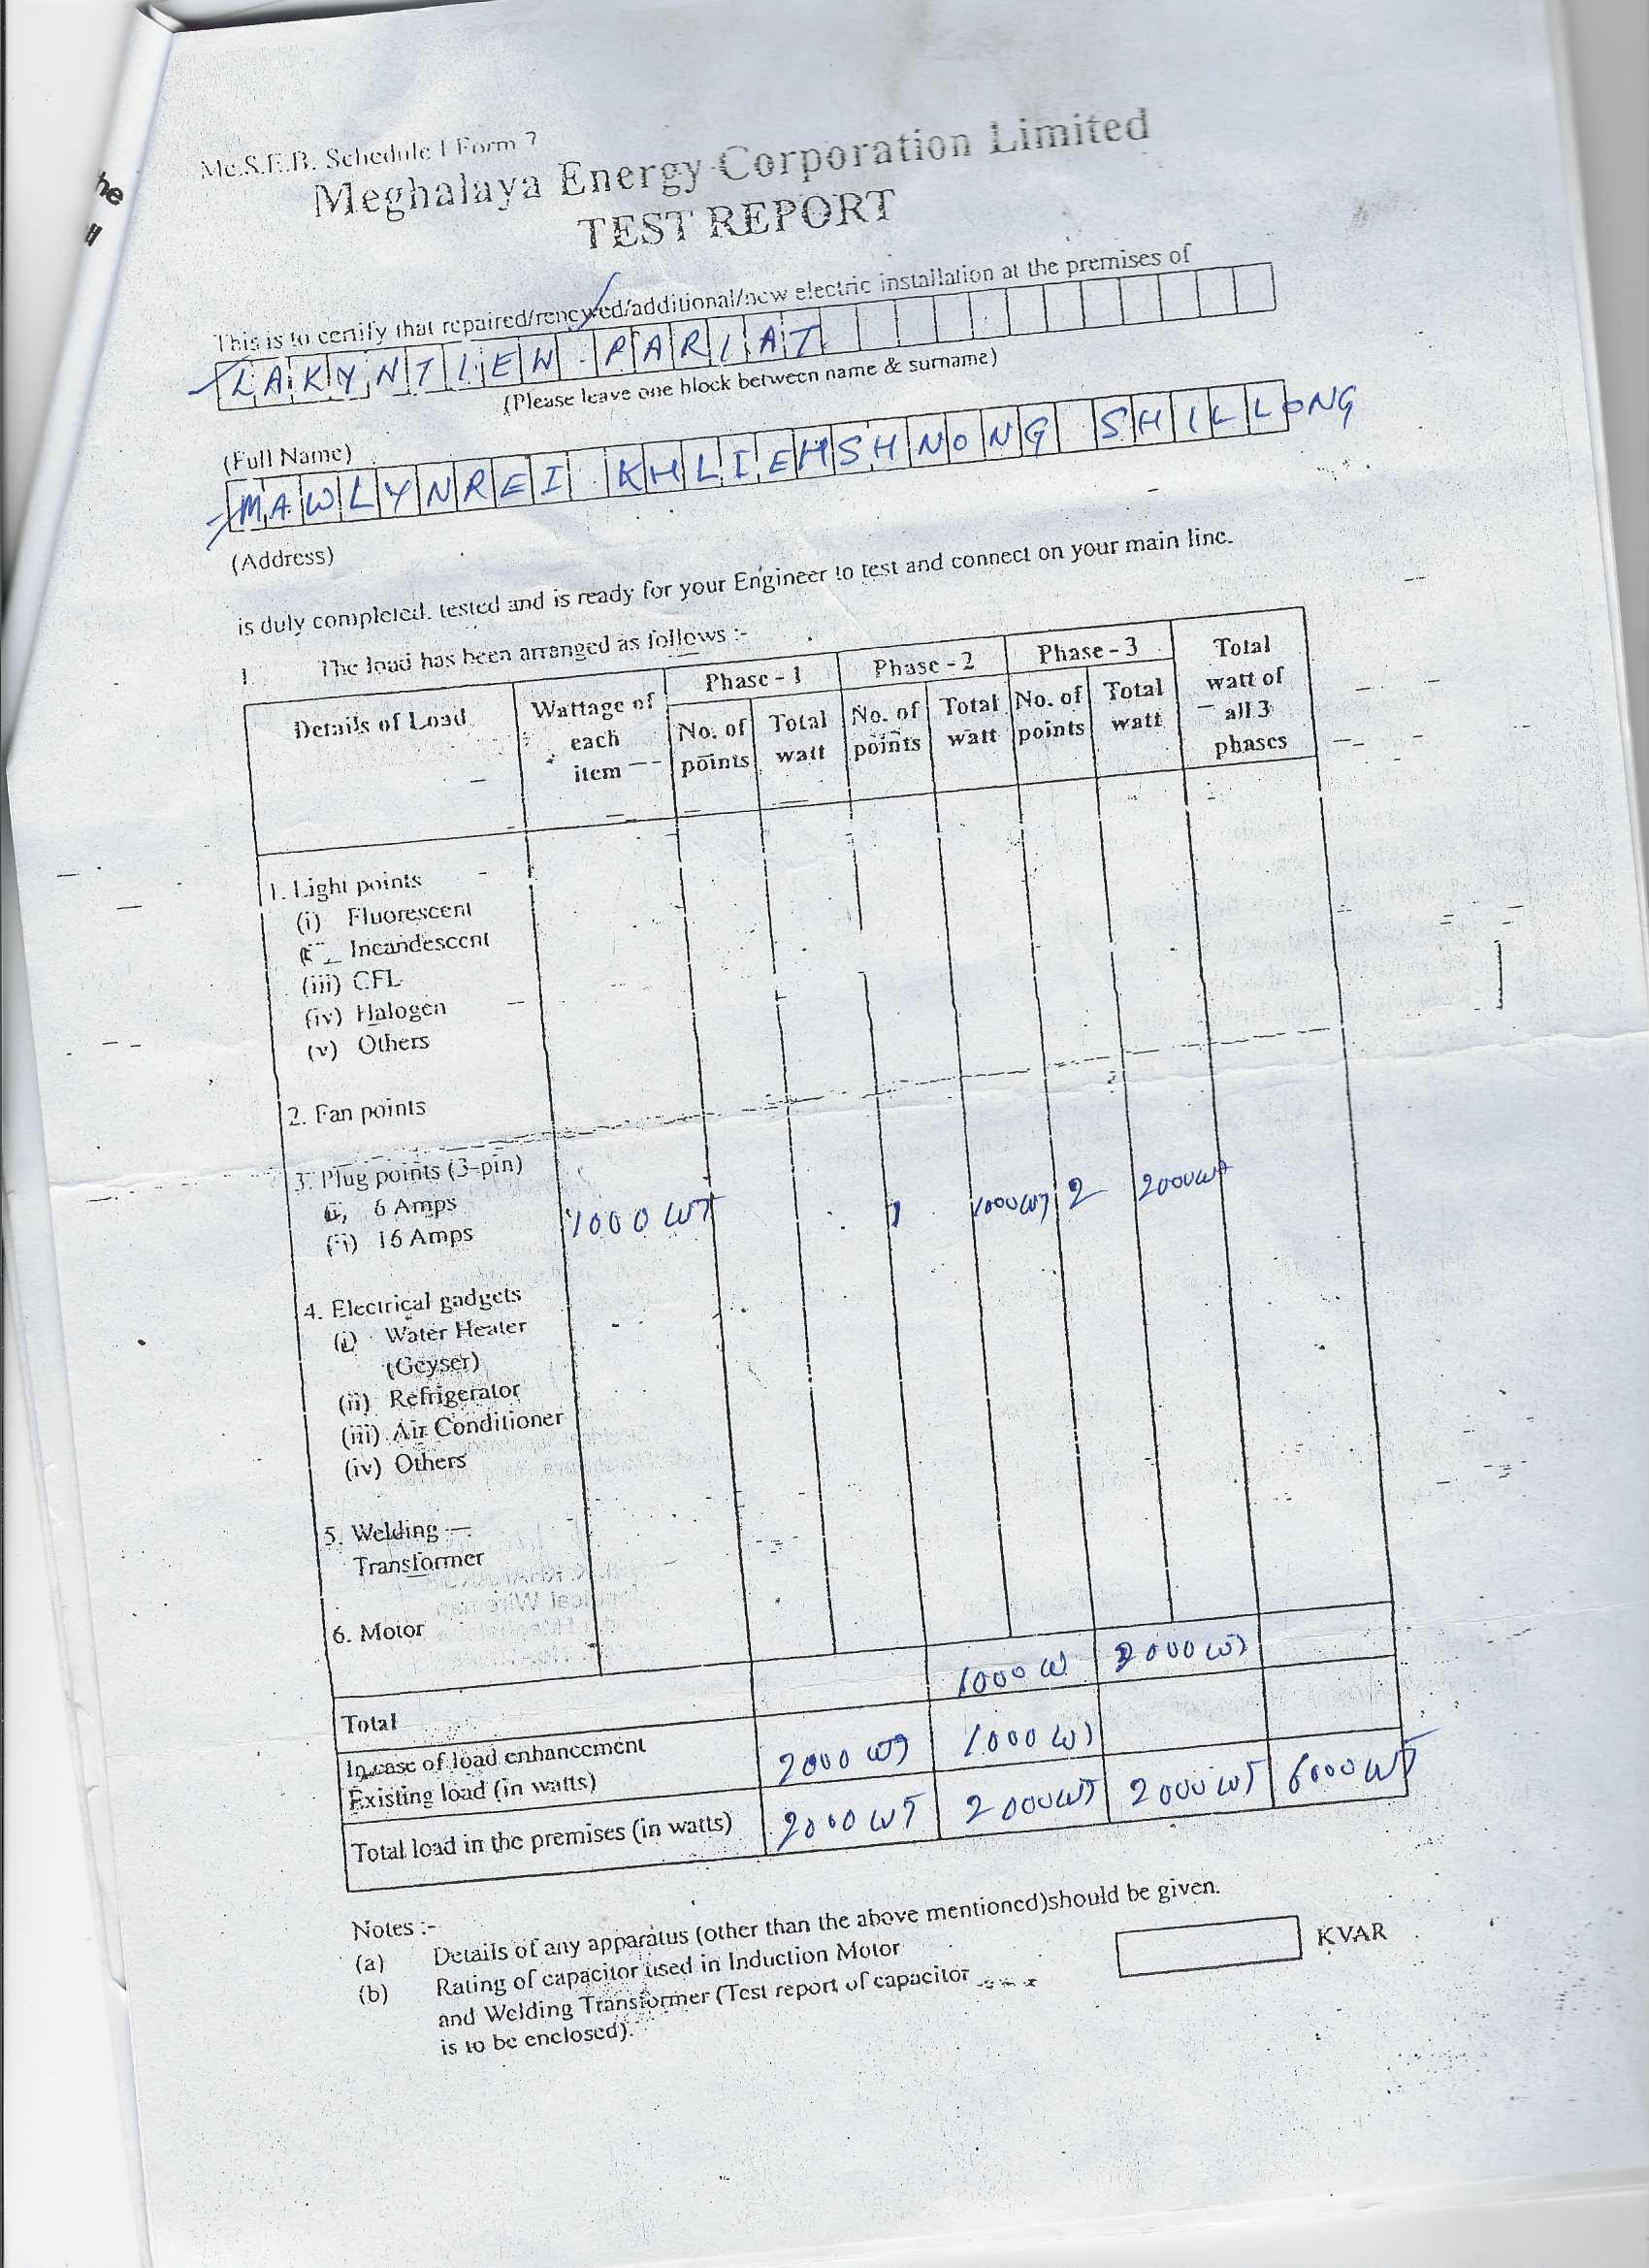 he
Me.S.E.B. Schedule I Form 7
Meghalaya Energy Corporation Limited
TEST REPORT
This is to certify that repaired/renewed/additional/new electric installation at the premises of
LAKYNTIEW PARIAT
(Please leave one block between name & surname)
(Full Name)
MAWLYNREI KHLIEHSHNONG SHILLONG
(Address)
is duly completed, tested and is ready for your Engineer to test and connect on your main line.
1. The load has been arranged as follows :-
Details of Load
Wattage of each item
Phase - 1
Phase - 2
Phase - 3
Total watt of all 3 phases
No. of points
Total watt
No. of points
Total watt
No. of points
Total watt
1. Light points
(i) Fluorescent
Incandescent
(iii) CFL
(iv) Halogen
(v) Others
2. Fan points
3. Plug points (3-pin)
(i) 6 Amps
(ii) 16 Amps 1000 WT 1 1000WT 2 2000WT
4. Electrical gadgets
(i) Water Heater
(Geyser)
(ii) Refrigerator
(iii) Air Conditioner
(iv) Others
5. Welding
Transformer
6. Motor
Total 1000 W 2000 WT
In case of load enhancement
Existing load (in watts) 2000 WT 1000 WT
Total load in the premises (in watts) 2000 WT 2000WT 2000 WT 6000 WT
Notes :-
(a) Details of any apparatus (other than the above mentioned)should be given.
(b) Rating of capacitor used in Induction Motor KVAR
and Welding Transformer (Test report of capacitor
is to be enclosed).